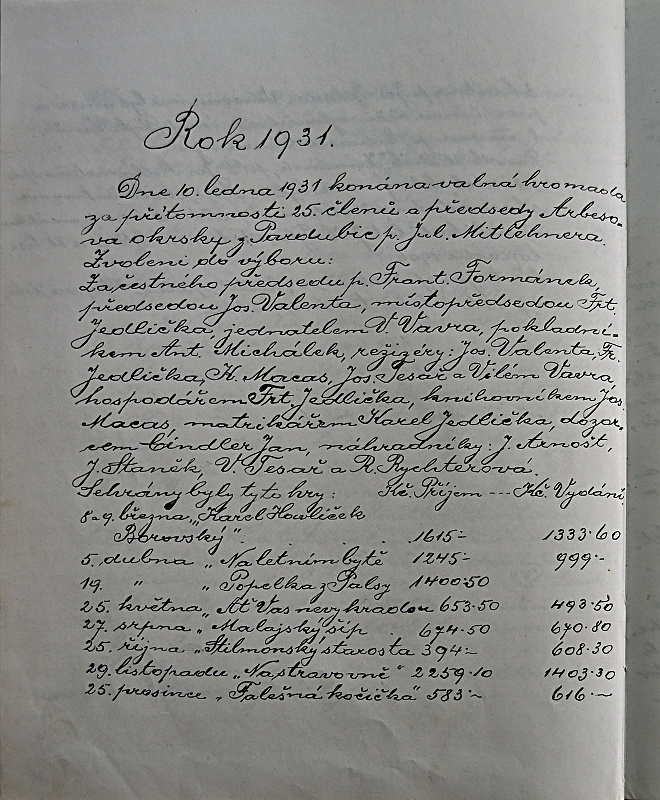 Rok 1931.
Dne 10. ledna 1931 konána valná hromada
za přítomnosti 25. členů a předsedy Arbeso-
va okrsky z Pardubic p. Jul. Mitlehnera.
Zvoleni do výboru:
Za čestného předsedu p. Frant. Formánek,
předsedou Jos. Valenta, místopředsedou Frt.
Jedlička, jednatelem V. Vavra, pokladní-
kem Ant. Michálek, režizéry: Jos. Valenta, Fr.
Jedlička, K. Macas, Jos. Tesař a Vilém Vavra,
hospodářem Frt. Jedlička, knihovníkem Jos.
Macas, matrikářem Karel Jedlička, dozor-
cem Cindler Jan, náhradníky: J. Arnošt,
J. Staněk, V. Tesař a R. Rychtérová.
Sehrány byly tyto hry: Kč. Příjem --- Kč. Vydání
8 a 9. března „Karel Havlíček
Borovský“ . . . 1615·- 1333·60
5. dubna „Na letním bytě 1245·- 999·-
19. " „Popelka z Palsy 1400·50
25. května „Ať Vas nevykradou 653·50 493·50
27. srpna „Malajský šíp . 674·50 670·80
25. října „Stilmonský starosta 394·- 608·30
29. listopadu „Na stravovně“ 2259·10 1403·30
25. prosince „Falešná kočička“ 583·- 616·-